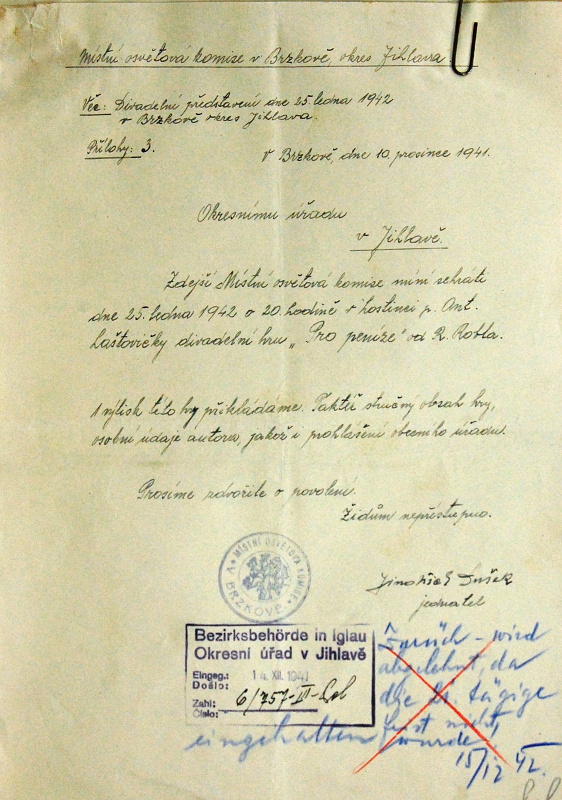 Místní osvětová komise v Brzkově, okres Jihlava
Věc: Divadelní představení dne 25. ledna 1942
v Brzkově okres Jihlava.
Přílohy: 3.
V Brzkově, dne 10. prosince 1941.
Okresnímu úřadu
v Jihlavě.
Zdejší Místní osvětová komise míní sehráti
dne 25. ledna 1942 o 20. hodině v hostinci p. Ant.
Laštovičky divadelní hru „Pro peníze" od R. Robla.
1 výtisk této hry přikládáme. Taktéž stručný obsah hry,
osobní údaje autora, jakož i prohlášení obecního úřadu.
Prosíme zdvořile o povolení.
Židům nepřístupno.
MÍSTNÍ OSVĚTOVÁ KOMISE
V BRZKOVĚ
Dušek
jednatel
Bezirksbehörde in Iglau
Okresní úřad v Jihlavě
Eingeg.:
Došlo: 14. XII. 1941
Zahl:
Číslo: 6/757-
Zurück - wird
abgelehnt, da
die 21. tägige
Frist nicht
eingehalten wurde.
15/12